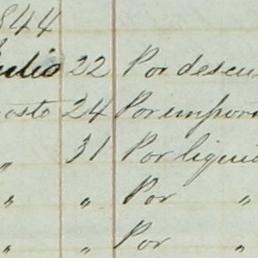 844
Julio 22 Por descu
osto 24 Por impor
„ 31 Por liquid
„ „ Por „
„ „ Por „